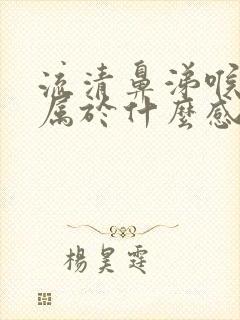 流清鼻涕喉
属於什麼感
楊昊霆